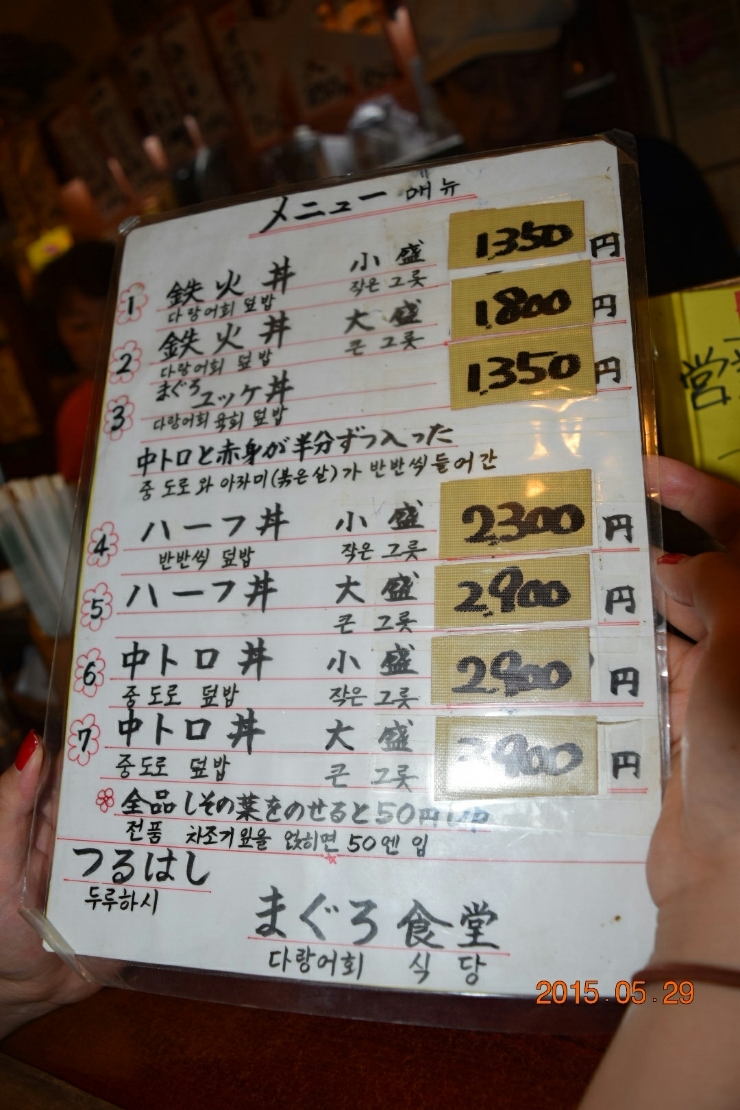 メニュー 메뉴
1 鉄火丼 小盛 1350円
다랑어회 덮밥 작은 그릇
2 鉄火丼 大盛 1800円
다랑어회 덮밥 큰 그릇
3 まぐろユッケ丼 1350円
다랑어회 육회 덮밥
中トロと赤身が半分ずつ入った
중 도로 와 아까미(붉은살)가 반반씩 들어간
4 ハーフ丼 小盛 2300円
반반씩 덮밥 작은 그릇
5 ハーフ丼 大盛 2900円
큰 그릇
6 中トロ丼 小盛 2900円
중도로 덮밥 작은 그릇
7 中トロ丼 大盛 3900円
중도로 덮밥 큰 그릇
全品しその葉をのせると50円UP
전품 차조기잎을 얹히면 50엔 입
つるはし
두루하시
まぐろ食堂
다랑어회 식당
営
2015.05.29